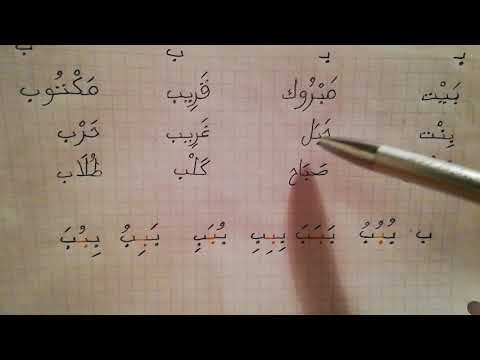 بـ بـ ب ب
بَيْت مَبْرُوك قَرِيب مَكْتُوب
بِنْت جَبَل غَرِيب حَرْب
صَبَاح كَلْب طُلَاب
ب بُبُبُ بَبَبَ بِبِبِ بُبَبِ بَبِبُ بِبُبَ